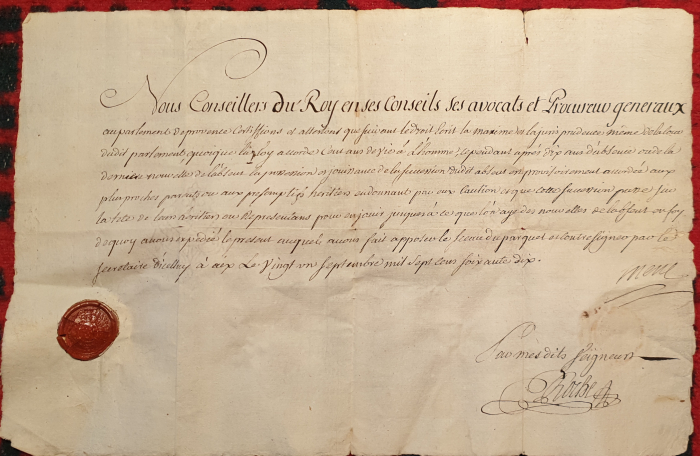 Nous Conseillers du Roy en ses Conseils ses avocats et Procureurs generaux
au parlement de provence Certiffions et attestons que suivant le droit Ecrit la maxime et la jurisprudence même de la Cour
dudit parlement quoique la Loy accorde Cent ans de vie à L'homme, cependant après dix ans d'absence ou de la
derniere nouvelle de l'absent la possession et jouissance de la succession dudit absent est provisoirement accordée aux
plus proches parents ou aux presomptifs heritiers en donnant par eux Caution et que cette succession passe sur
la tete de leurs heritiers ou Representans pour en jouir jusques à ce que lon aye des nouvelles de l'absent en foy
de quoy avons expedié le present auquel avons fait apposer le sceau du parquet et contresigner par le
secretaire d'icelluy à aix Le Vingt un septembre mil sept cens soixante dix.
Par mes dits seigneurs